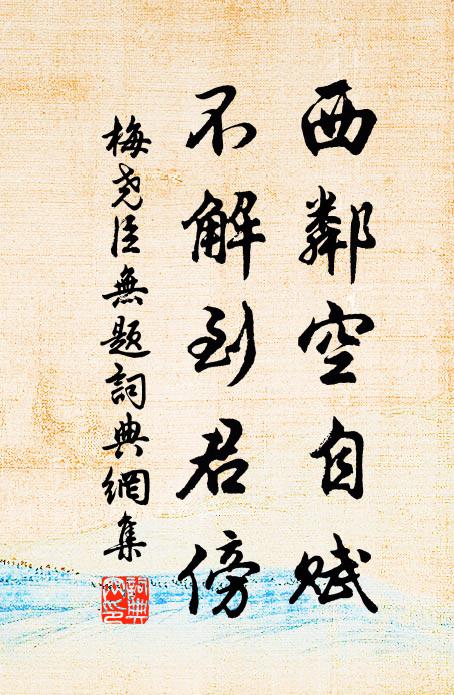 西鄰空自賦
不解到君傍
梅尧臣無題詞典網集